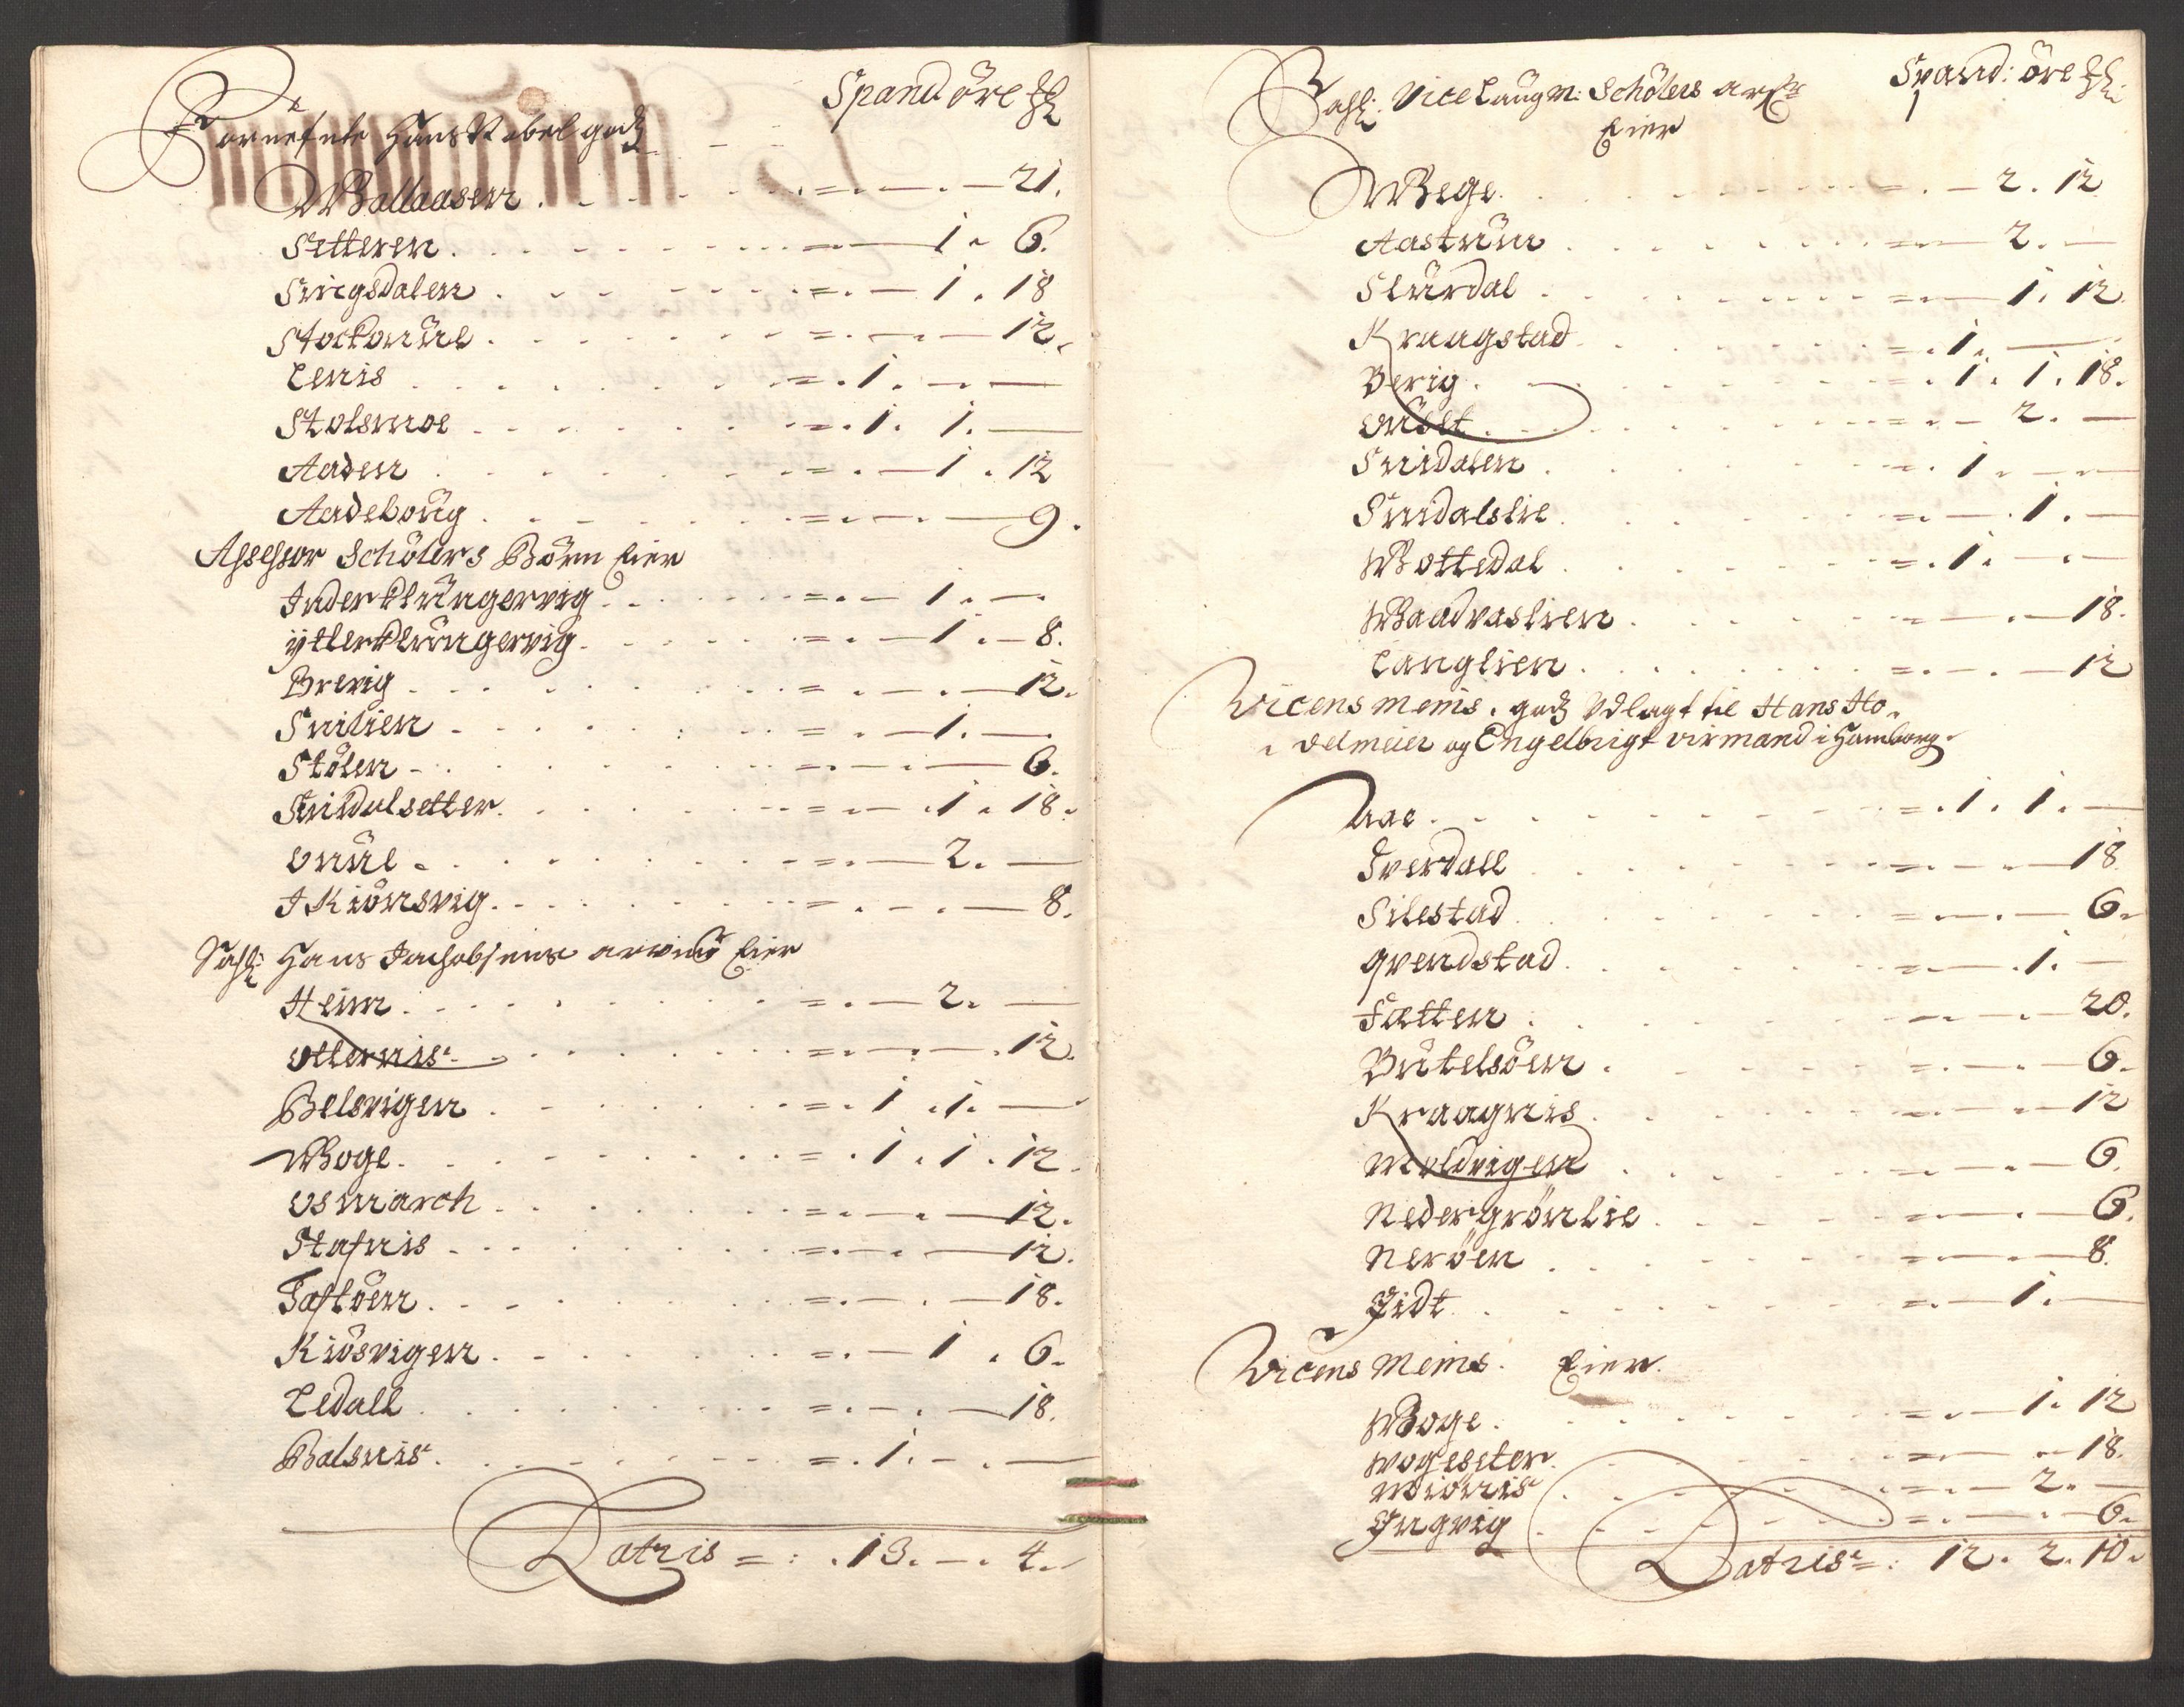 Spand öre
Fornefnte Hans Nobel godz
Wallaasen . . . = . — . — 21.
Setteren . . . = — 1 . 6.
Snigsdalen . . . = . — 1 . 18
Stockmüe . . . = . — . — 12.
Lenis . . . = . 1 . — . —
Stolsmoe . . . = . 1 . 1 . —
Aaden . . . = . — 1 . 12
Aadehoug . . . = . — . — 9.
Assessor Schölers Börn Eier
Inderklüngervig . . . = . — 1 . —
ytterklüngervig . . . = . — 1 . — 8.
Brevig . . . = . — . — 12.
Snilien . . . = . — 1 . —
Stölen . . . = — . — 6.
Snildalsetter . . . = . — . 1 . 18.
Vnüe . . . = . — 2. —
I Kiörsvig . . . = . — . — 8.
Sahl: Hans Jachobsens arvinger Eier
Heim . . . = . — 2. —
Otternis . . . = . — . — 12.
Belsvigen . . . = . 1 . 1. —
Woge . . . = . 1 . 1 . 12.
Osmarch . . . = . — . — 12.
Stafnis . . . = . — . — 12.
Taftöen . . . = . — . — 18.
Kiösvigen . . . = . — 1 . 6.
Ledall . . . = . — . — 18.
Balsnis . . . = . 1. — . —
Latris = : . 13. — . 4.
Spand: öre
Sahl: Vice Laugm: Schölers arfr
Eier
Wege . . . = . — 2 . 12
Aastrüm . . . = — 2. —
Slürdal . . . = — 1. 12.
Kraagstad . . . = . 1. —
Berig . . . = . 1 . 1 . 18.
Snidalen . . . = . 1 . — . —
Snidalslie . . . = . — . 1. —
Wottedal . . . = . 1. — . —
Waadvaslien . . . = . — . — 18.
Langlien . . . = . — . — 12
Vicens Meins. godz Vdlagt til Hans Ho.
. velmeier og Engelbrigt virmand i Hamborg.
Aae . . . = . 1 . 1 . —
Sverdall . . . = . — . — 18
Silestad . . . = . — . — 6.
qvendstad . . . = . — . 1. —
Sætter . . . = . — . — 20.
Bütelsöen . . . = . — . — 6.
Kraagnis . . . = . — . — 12
Moldvigen . . . = . — . — 6.
Neder Grönlie . . . = — . — 6.
Neröen . . . = — . — 8.
Gidt . . . = . — 1. —
Vicens Meins. Eier.
Woge . . . = . — 1. 12
Wogeseter . . . = . — . — 18.
Miönis . . . = . — 2. —
Yngvig . . . = . — . — 6.
Latris = : 12. 2. 10.